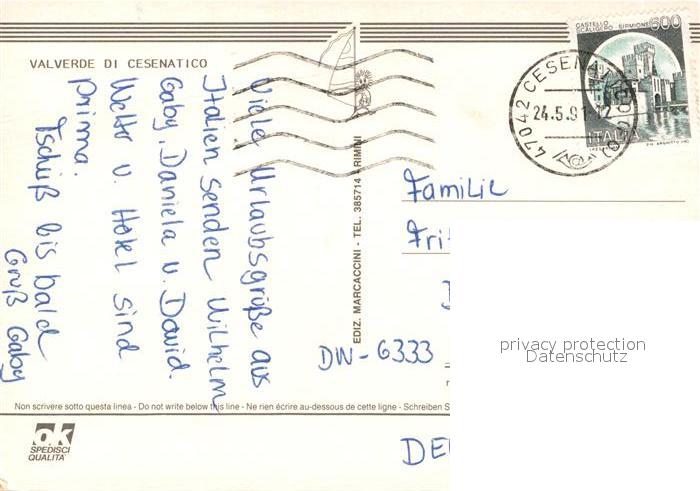 VALVERDE DI CESENATICO
Viele Urlaubsgrüße aus
Italien senden Wilhelm
Gaby, Daniela u. David.
Wetter u. Hotel sind
prima.
Tschüß bis bald
Gruß Gaby
EDIZ. MARCACCINI - TEL. 385714 - RIMINI
CASTELLO
SCALIGERO SIRMIONE 600
ITALIA
47042 CESENATICO (FO)
24.5.91
Familie
Fri
DW - 6333
DE
privacy protection
Datenschutz
Non scrivere sotto questa linea - Do not write below this line - Ne rien écrire au-dessous de cette ligne - Schreiben S
ok
SPEDISCI
QUALITÀ